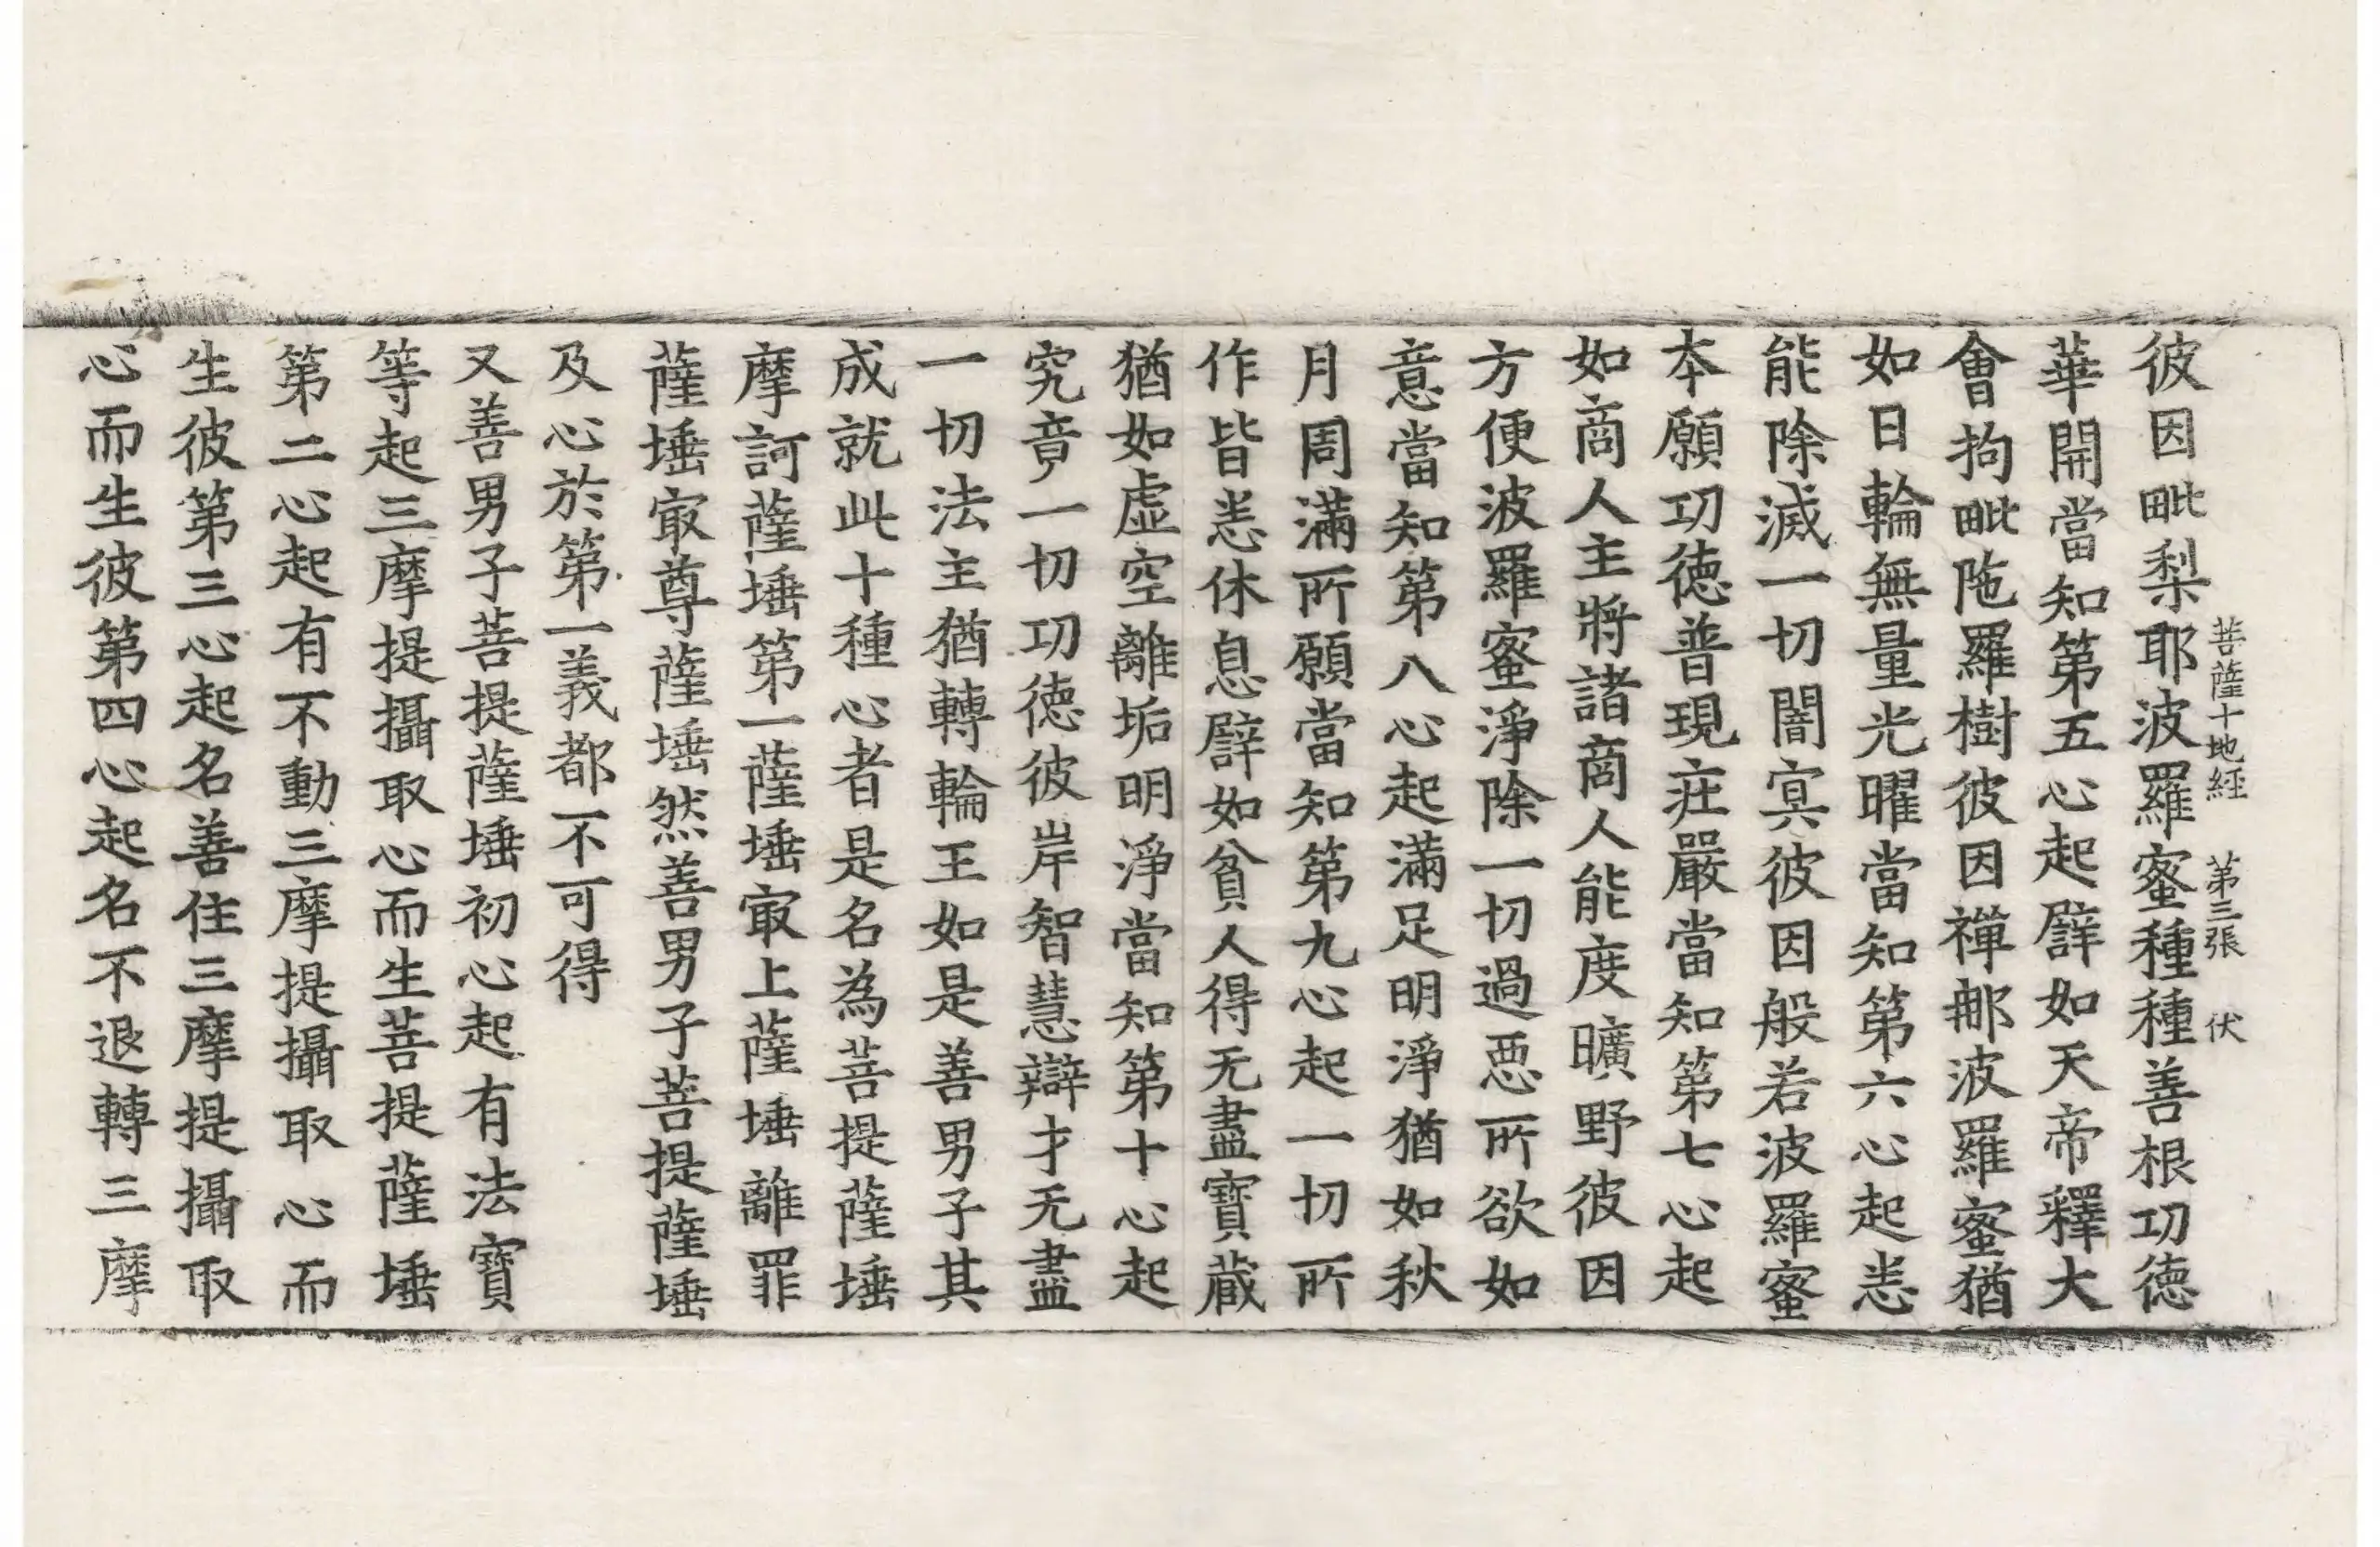 菩薩十地經　第三張　伏
彼因毗梨耶波羅蜜種種善根功德
華開當知第五心起譬如天帝釋大
會拘毗陁羅樹彼因禪那波羅蜜猶
如日輪無量光曜當知第六心起悉
能除滅一切闇冥彼因般若波羅蜜
本願功德普現莊嚴當知第七心起
如商人主將諸商人能度曠野彼因
方便波羅蜜淨除一切過惡所欲如
意當知第八心起滿足明淨猶如秋
月周滿所願當知第九心起一切所
作皆悉休息譬如貧人得无盡寶藏
猶如虛空離垢明淨當知第十心起
究竟一切功德彼岸智慧辯才无盡
一切法主猶轉輪王如是善男子其
成就此十種心者是名為菩提薩埵
摩訶薩埵第一薩埵㝡上薩埵離罪
薩埵㝡尊薩埵然善男子菩提薩埵
及心於第一義都不可得
又善男子菩提薩埵初心起有法寶
等起三摩提攝取心而生菩提薩埵
第二心起有不動三摩提攝取心而
生彼第三心起名善住三摩提攝取
心而生彼第四心起名不退轉三摩